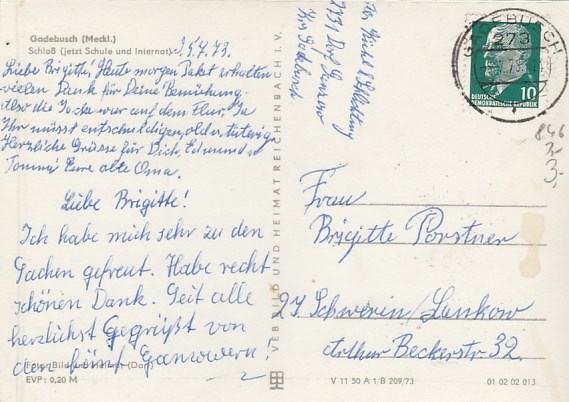 Gadebusch (Meckl.)
Schloß (jetzt Schule und Internat)
Liebe Brigitte! Heute morgen Paket erhalten
vielen Dank für Deine Bemühung.
Also die Jacke war auf dem Flur. Ja
Ihr müsst entschuldigen,
Herzliche Grüsse für Dich, Edmund u.
Tommy Eure alte Oma.
Liebe Brigitte!
Ich habe mich sehr zu den
Sachen gefreut. Habe recht
schönen Dank. Seit alle
herzlichst Gegrüßt von
den fünf Ganzowern!
EVP: 0,20 M
VEB BILD UND HEIMAT REICHENBACH I. V.
GADEBUSCH
273
DEUTSCHE
DEMOKRATISCHE REPUBLIK
10
846
3,-
Frau
Brigitte Porstner
27 Schwerin/Lankow
Arthur Beckerstr 32.
V 11 50 A 1/B 209/73
01 02 02 013